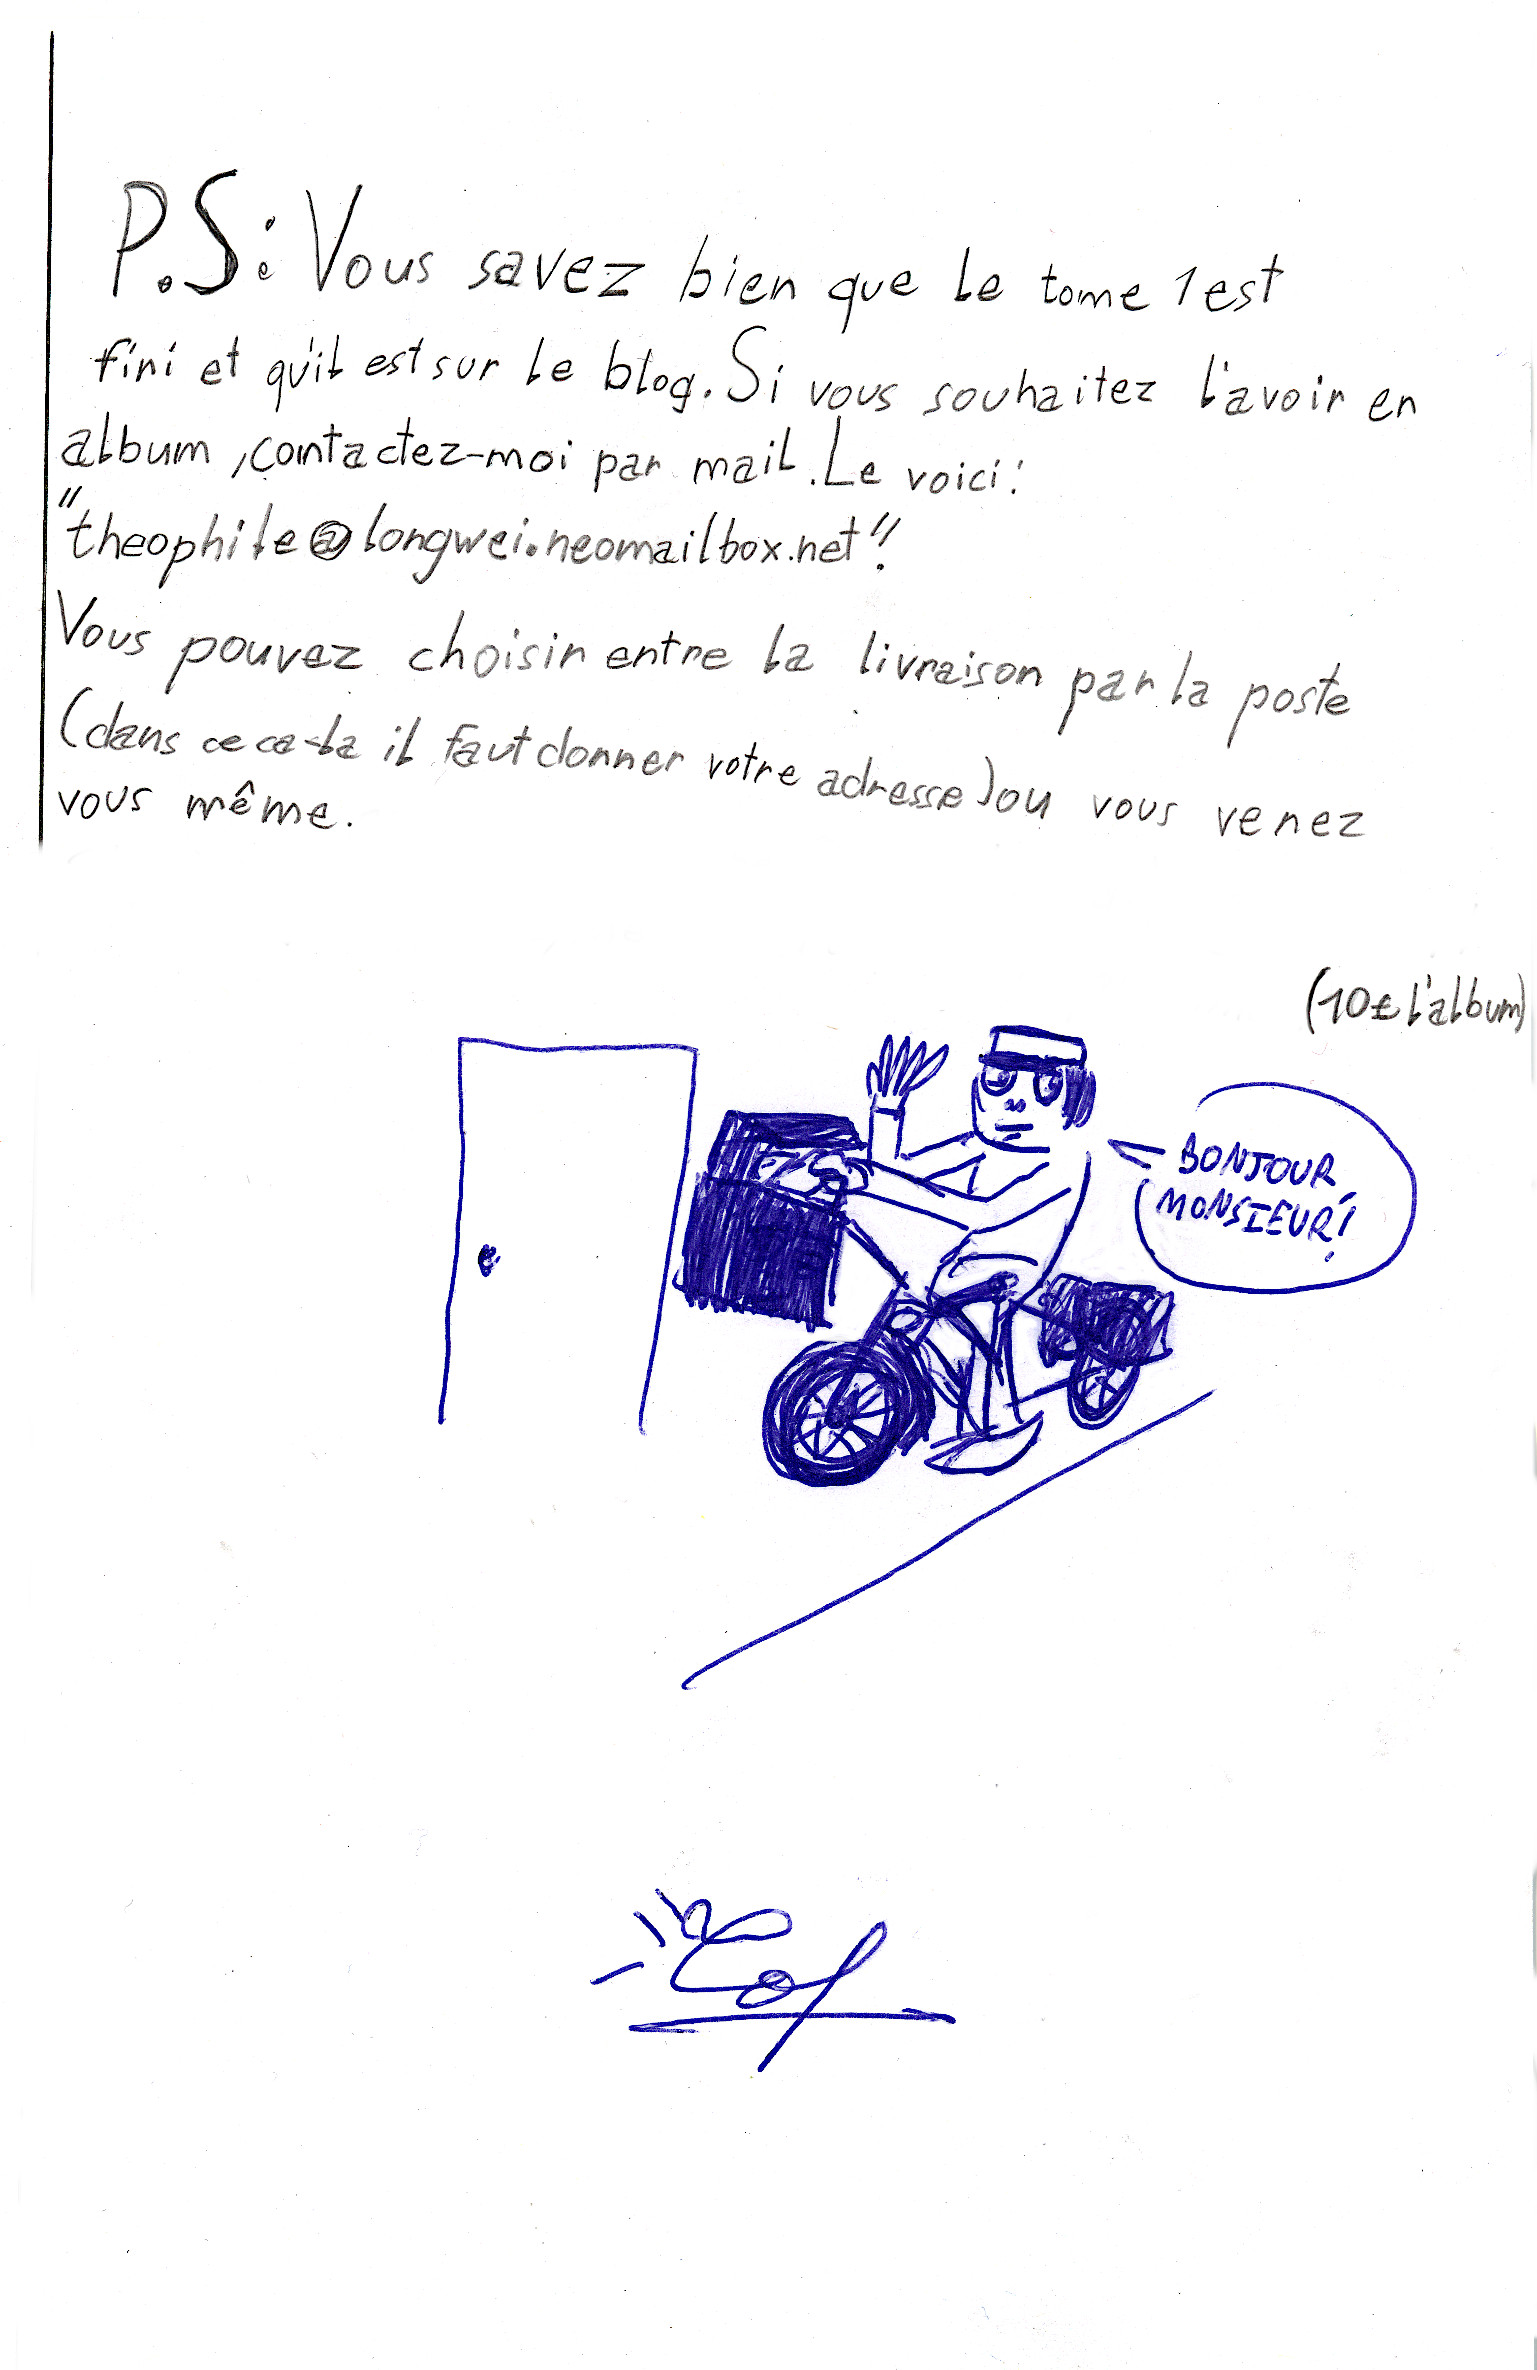 P.S: Vous savez bien que le tome 1 est
fini et qu'il est sur le blog. Si vous souhaitez l'avoir en
album, contactez-moi par mail. Le voici:
"theophile@longwei.neomailbox.net"!
Vous pouvez choisir entre la livraison par la poste
(dans ce ca-la il faut donner votre adresse) ou vous venez
vous même.
(10€ l'album)
BONJOUR
MONSIEUR!